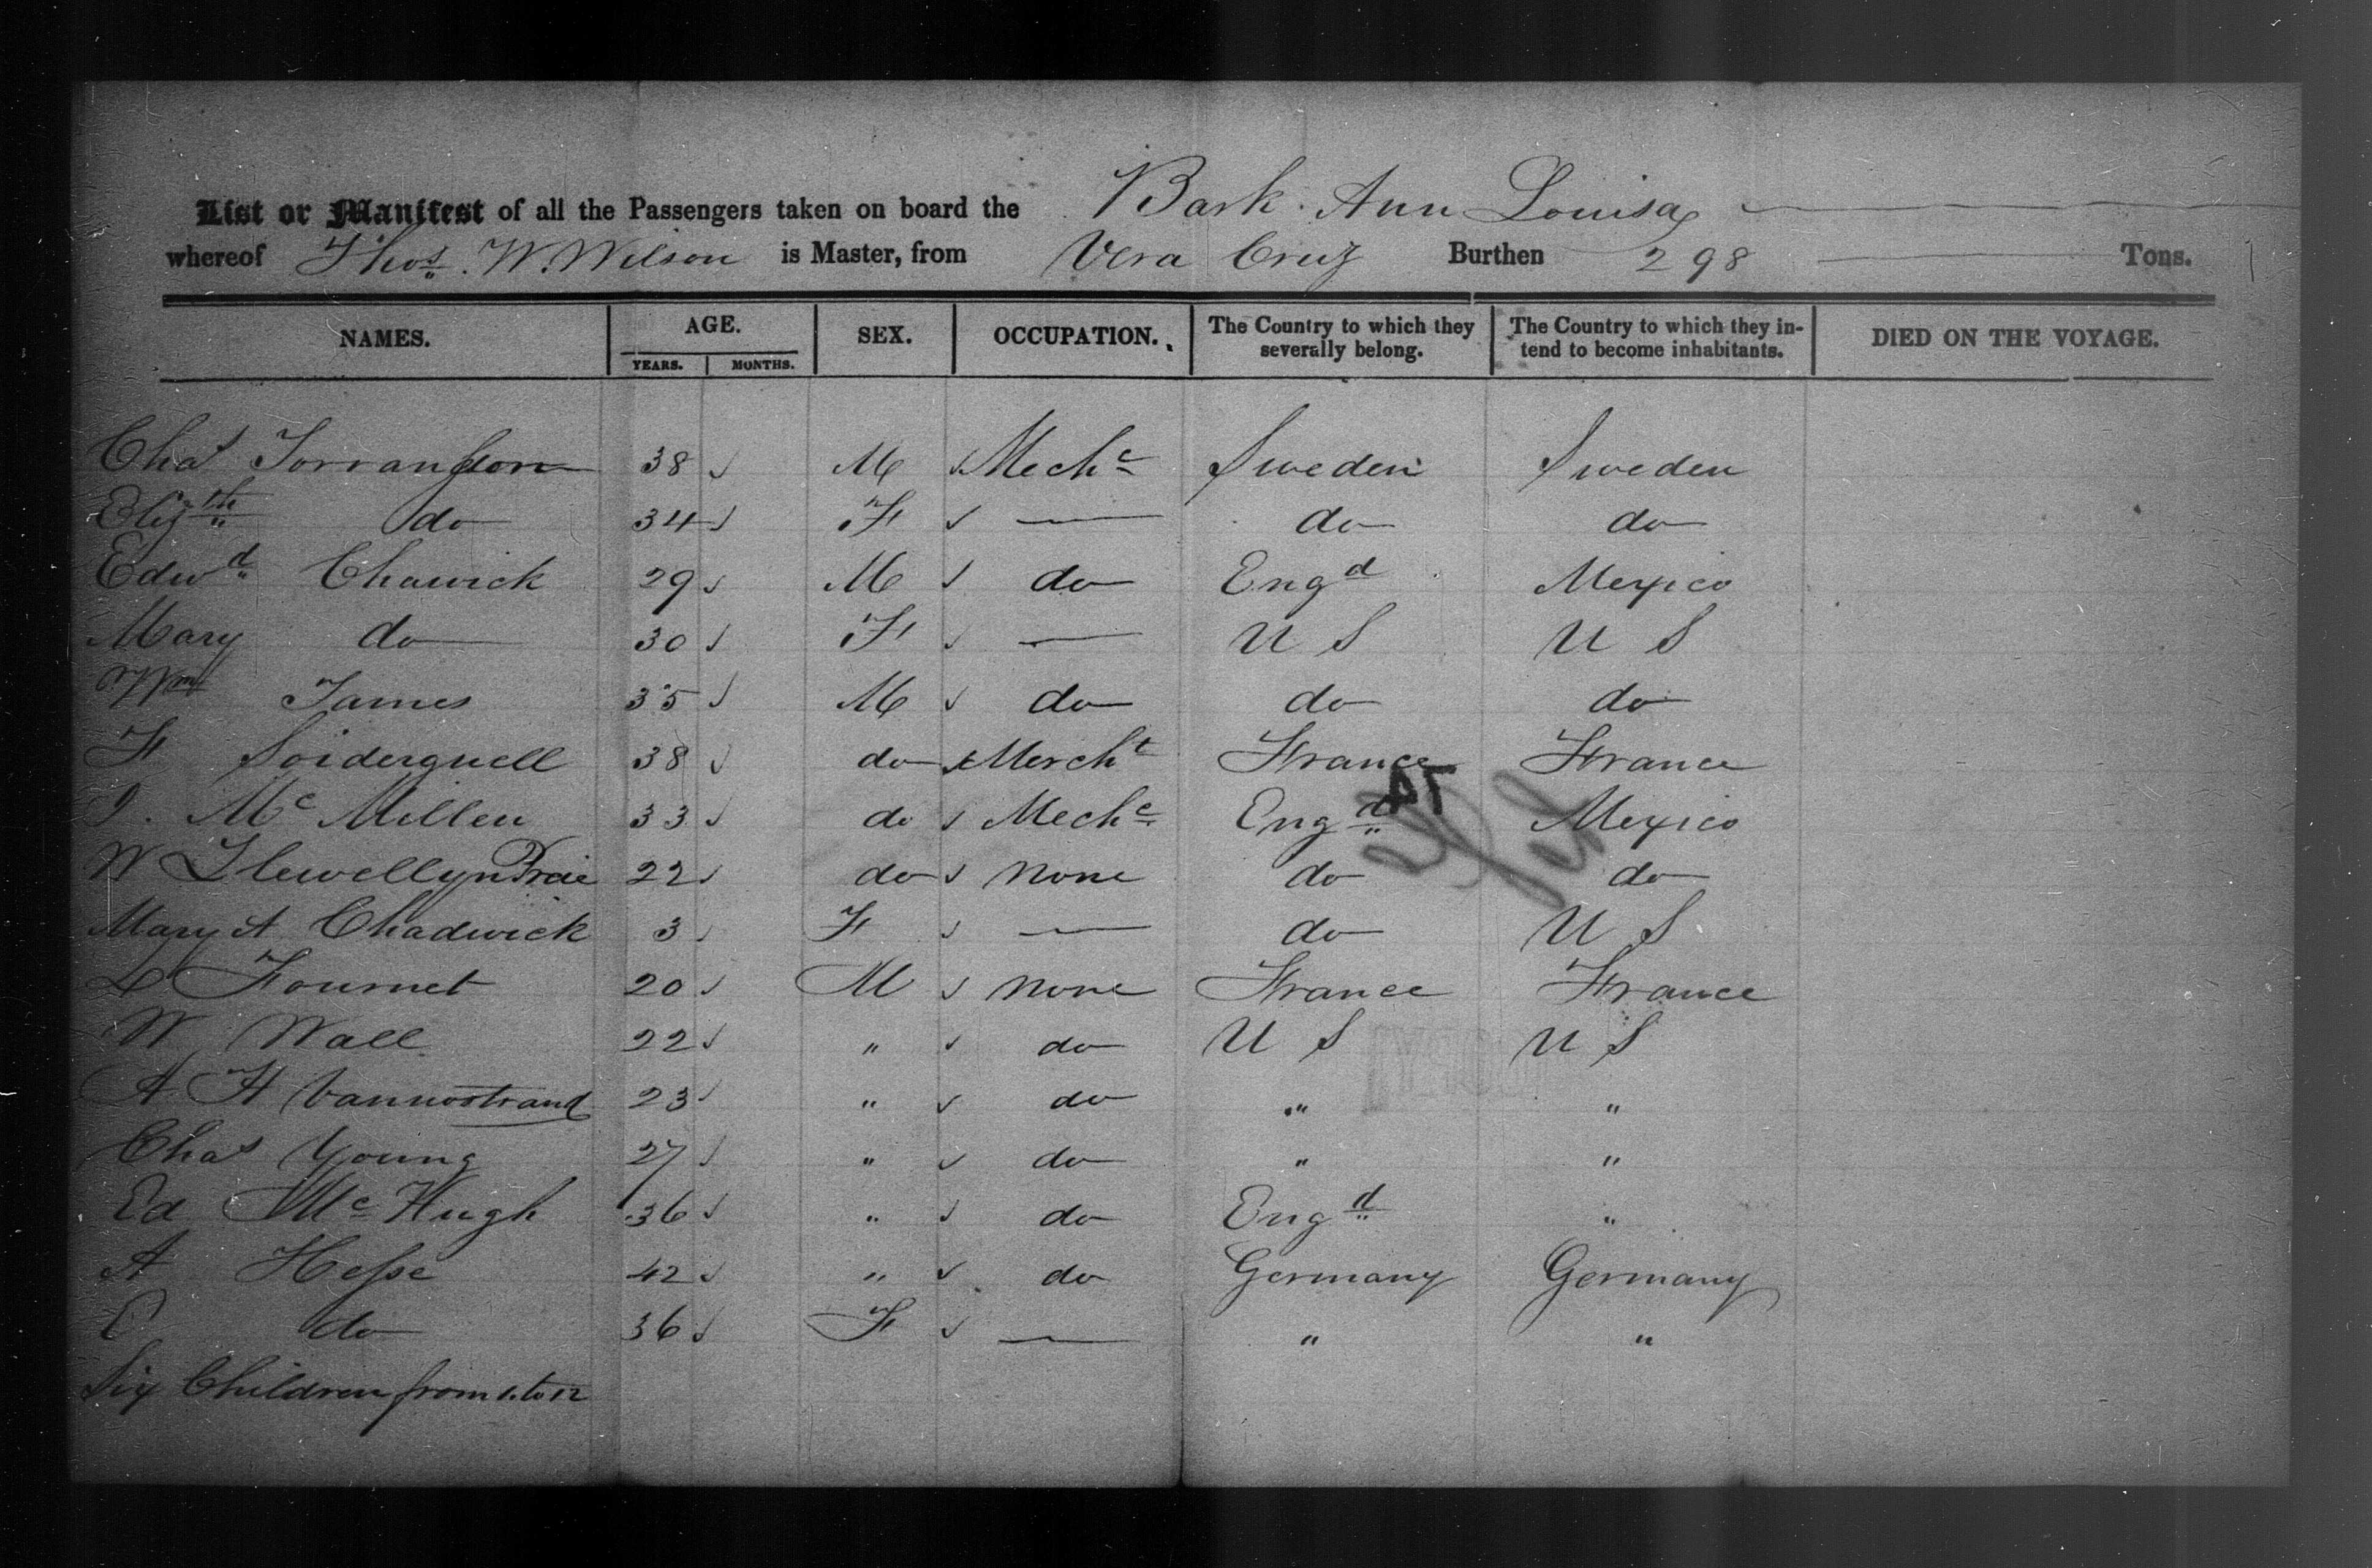 List or Manifest of all the Passengers taken on board the Bark Ann Louisa
whereof Thos. W. Wilson is Master, from Vera Cruz Burthen 298 Tons.
NAMES. AGE. SEX. OCCUPATION. The Country to which they severally belong. The Country to which they intend to become inhabitants. DIED ON THE VOYAGE.
YEARS. MONTHS.
Chas 38 M Mechc Sweden Sweden
Elizth do 34 F — do do
Edwd Chawick 29 M do Engd Mexico
Mary do 30 F — U S U S
Wm James 35 M do do do
F Soiderquell 38 do Mercht France France
J. Mc Millen 33 do Mechc Engd Mexico
W Llewellyn 22 do none do do
Mary A Chadwick 3 F — do U S
L Fournet 20 M none France France
W Wall 22 " do U S U S
A H Vannostrand 23 " do " "
Chas Young 27 " do " "
Ed Mc Hugh 36 " do Engd "
A Hesse 42 " do Germany Germany
E do 36 F — " "
Six Children from 1 to 12